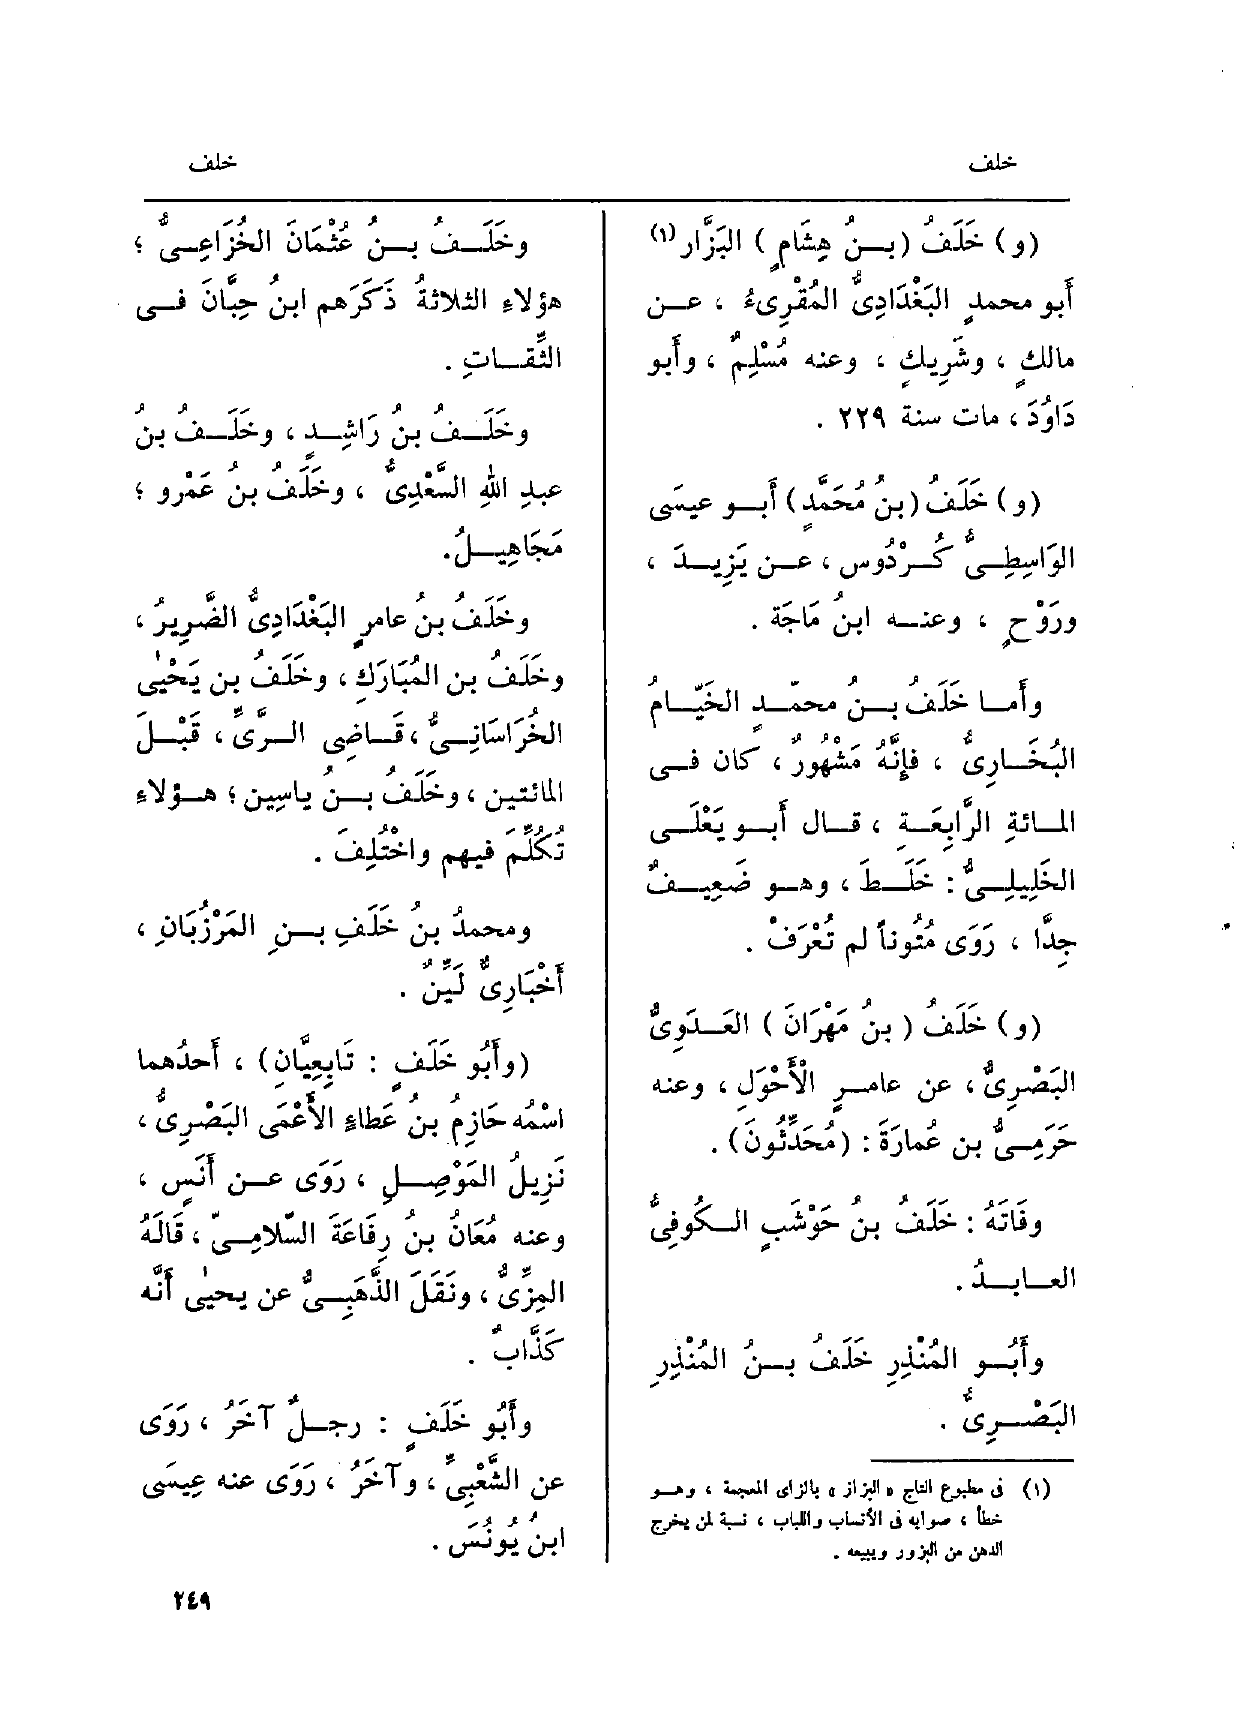 خلف
خلف
(و) خَلَفُ (بـنُ هِشَامٍ) البَزَّار(١)
أبو محمدٍ البَغْدَادِىُّ المُقْرِىءُ ، عـن
مالكٍ ، وشَرِيكٍ ، وعنه مُسْلِمٌ ، وأبو
دَاوُدَ ، مات سنة ٢٢٩ .
(و) خَلَفُ (بنُ مُحَمَّدٍ) أَبـو عيسَى
الوَاسِطِـىُّ كُـرْدُوس ، عـن يَزِيـدَ ،
ورَوْحٍ ، وعنـه ابنُ مَاجَة .
وأمـا خَلَفُ بـنُ محمّـدٍ الخَيَّـامُ
البُخَـارِىُّ ، فإِنَّهُ مَشْهُورٌ ، كان فـى
المـائةِ الرَّابِعَـةِ ، قـال أَبـو يَعْلَـى
الخَلِيلِـىُّ : خَلَـطَ ، وهـو ضَعِيـفٌ
جِدًّا ، رَوَى مُتُوناً لم تُعْرَفْ .
(و) خَلَفُ (بنُ مَهْرَانَ) العَـدَوِىُّ
البَصْرِىُّ ، عن عامـرٍ الأَحْوَلِ ، وعنه
حَرَمِـىُّ بن عُمارَةَ : (مُحَدِّثُونَ) .
وفَاتَهُ : خَلَفُ بنُ حَوْشَبٍ الـكُوفِىُّ
العـابـدُ .
وأَبُـو المُنْذِرِ خَلَفُ بـنُ المُنْذِرِ
البَصْـرِىُّ .
(١) فى مطبوع التاج « البزاز » بالزاى المعجمة ، وهـو
خطأ ، صوابه فى الأنساب واللباب ، نسبة لمن يخرج
الدهن من البزور ويبيعه .
وخَلَـفُ بـنُ عُثْمَانَ الخُزَاعِـىُّ ؛
هؤلاءِ الثلاثةُ ذَكَرَهم ابنُ حِبَّانَ فـى
الثِّقـاتِ .
وخَلَـفُ بنُ رَاشِـدٍ ، وخَلَـفُ بنُ
عبدِ اللهِ السَّعْدِىُّ ، وخَلَفُ بنُ عَمْرو ؛
مَجَاهِيـلُ.
وخَلَفُ بنُ عامرٍ البَغْدَادِىُّ الضَّرِيرُ ،
وخَلَفُ بن المُبَارَكِ ، وخَلَفُ بن يَحْيٰى
الخُرَاسَانِـىُّ ، قَـاضِى الـرَّىِّ ، قَبْـلَ
المائتين ، وخَلَفُ بـنُ ياسِين ؛ هـؤلاءِ
تُكُلِّمَ فيهم واخْتُلِفَ .
ومحمدُ بنُ خَلَفِ بـنِ المَرْزُبَانِ ،
أَخْبَارِىٌّ لَيِّنٌ .
(وأَبُو خَلَفٍ : تَابِعِيَّانِ) ، أَحدُهما
اسْمُه حَازِمُ بنُ عَطاءٍ الأَعْمَى البَصْرِىُّ ،
نَزِيلُ المَوْصِـلِ ، رَوَى عـن أَنَسٍ ،
وعنه مُعَانُ بنُ رِفَاعَةَ السَّلامِـىّ ، قَالَهُ
المِزِّىُّ ، ونَقَلَ الذَّهَبِـىُّ عن يحيٰى أَنَّه
كَذَّابٌ .
وأَبُو خَلَفٍ : رجـلٌ آخَرُ ، رَوَى
عن الشَّعْبِىِّ ، وآخَرُ ، رَوَى عنه عِيسَى
ابنُ يُونُسَ .
٢٤٩